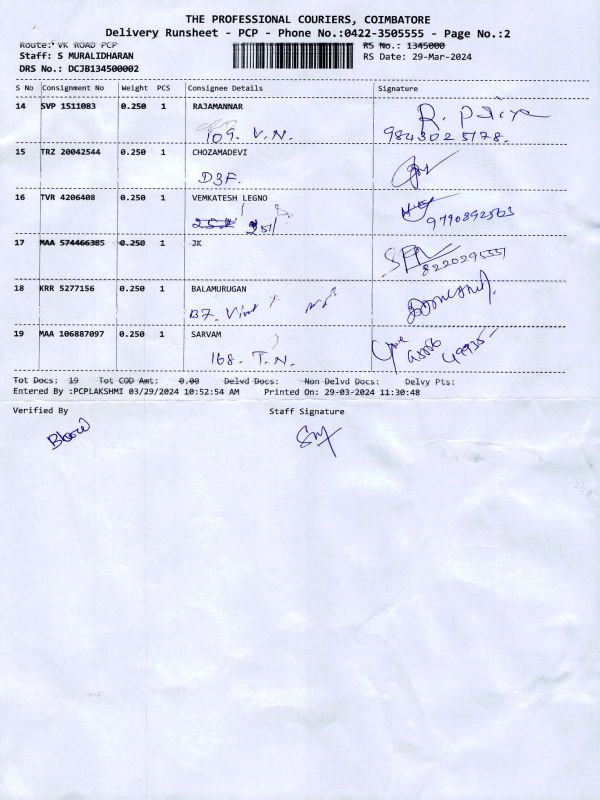 THE PROFESSIONAL COURIERS, COIMBATORE
Delivery Runsheet - PCP - Phone No.:0422-3505555 - Page No.:2
Route: VK ROAD PCP RS No.: 1345000
Staff: S MURALIDHARAN RS Date: 29-Mar-2024
DRS No.: DCJB134500002
S No Consignment No Weight PCS Consignee Details Signature
14 SVP 1511083 0.250 1 RAJAMANNAR R. priya
109. V.N. 9843025178.
15 TRZ 20042544 0.250 1 CHOZAMADEVI
D3F.
16 TVR 4206408 0.250 1 VEMKATESH LEGNO
251/ 9790892563
17 MAA 574466385 0.250 1 JK
8220295557
18 KRR 5277156 0.250 1 BALAMURUGAN
B7.
19 MAA 106887097 0.250 1 SARVAM
168. T.N.
Tot Docs: 19 Tot COD Amt: 0.00 Delvd Docs: Non Delvd Docs: Delvy Pts:
Entered By :PCPLAKSHMI 03/29/2024 10:52:54 AM Printed On: 29-03-2024 11:30:48
Verified By Staff Signature